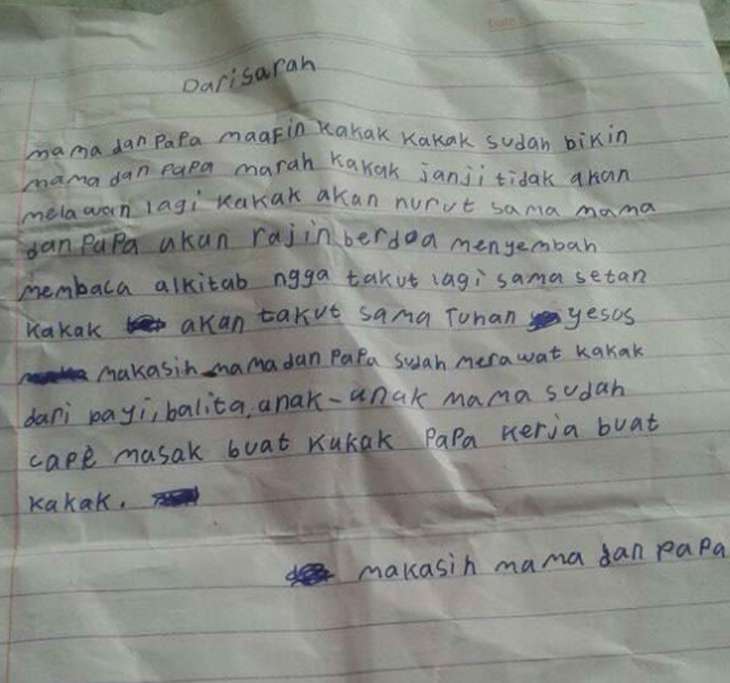 Date
Dari sarah
mama dan papa maafin kakak kakak sudah bikin
mama dan papa marah kakak janji tidak akan
melawan lagi kakak akan nurut sama mama
dan papa akan rajin berdoa menyembah
membaca alkitab ngga takut lagi sama setan
kakak akan takut sama Tuhan yesos
makasih mama dan papa sudah merawat kakak
dari bayi, balita, anak-anak mama sudah
capè masak buat kakak papa kerja buat
kakak.
makasih mama dan papa